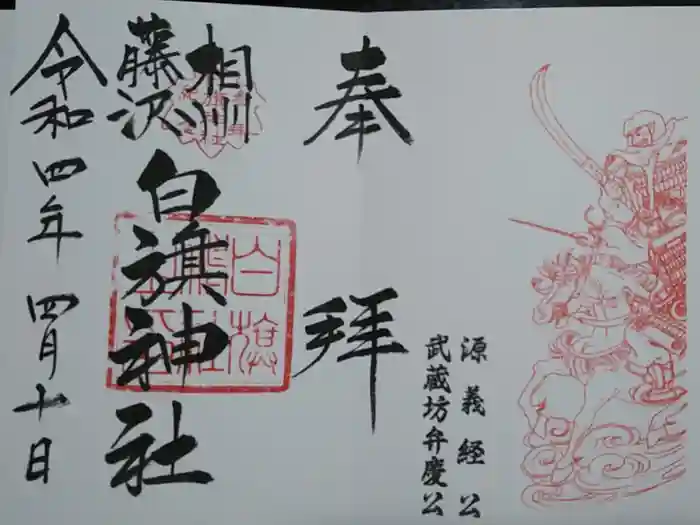 源義経公
武蔵坊弁慶公
奉拝
相州
藤沢
白旗神社
令和四年四月十日
白旗